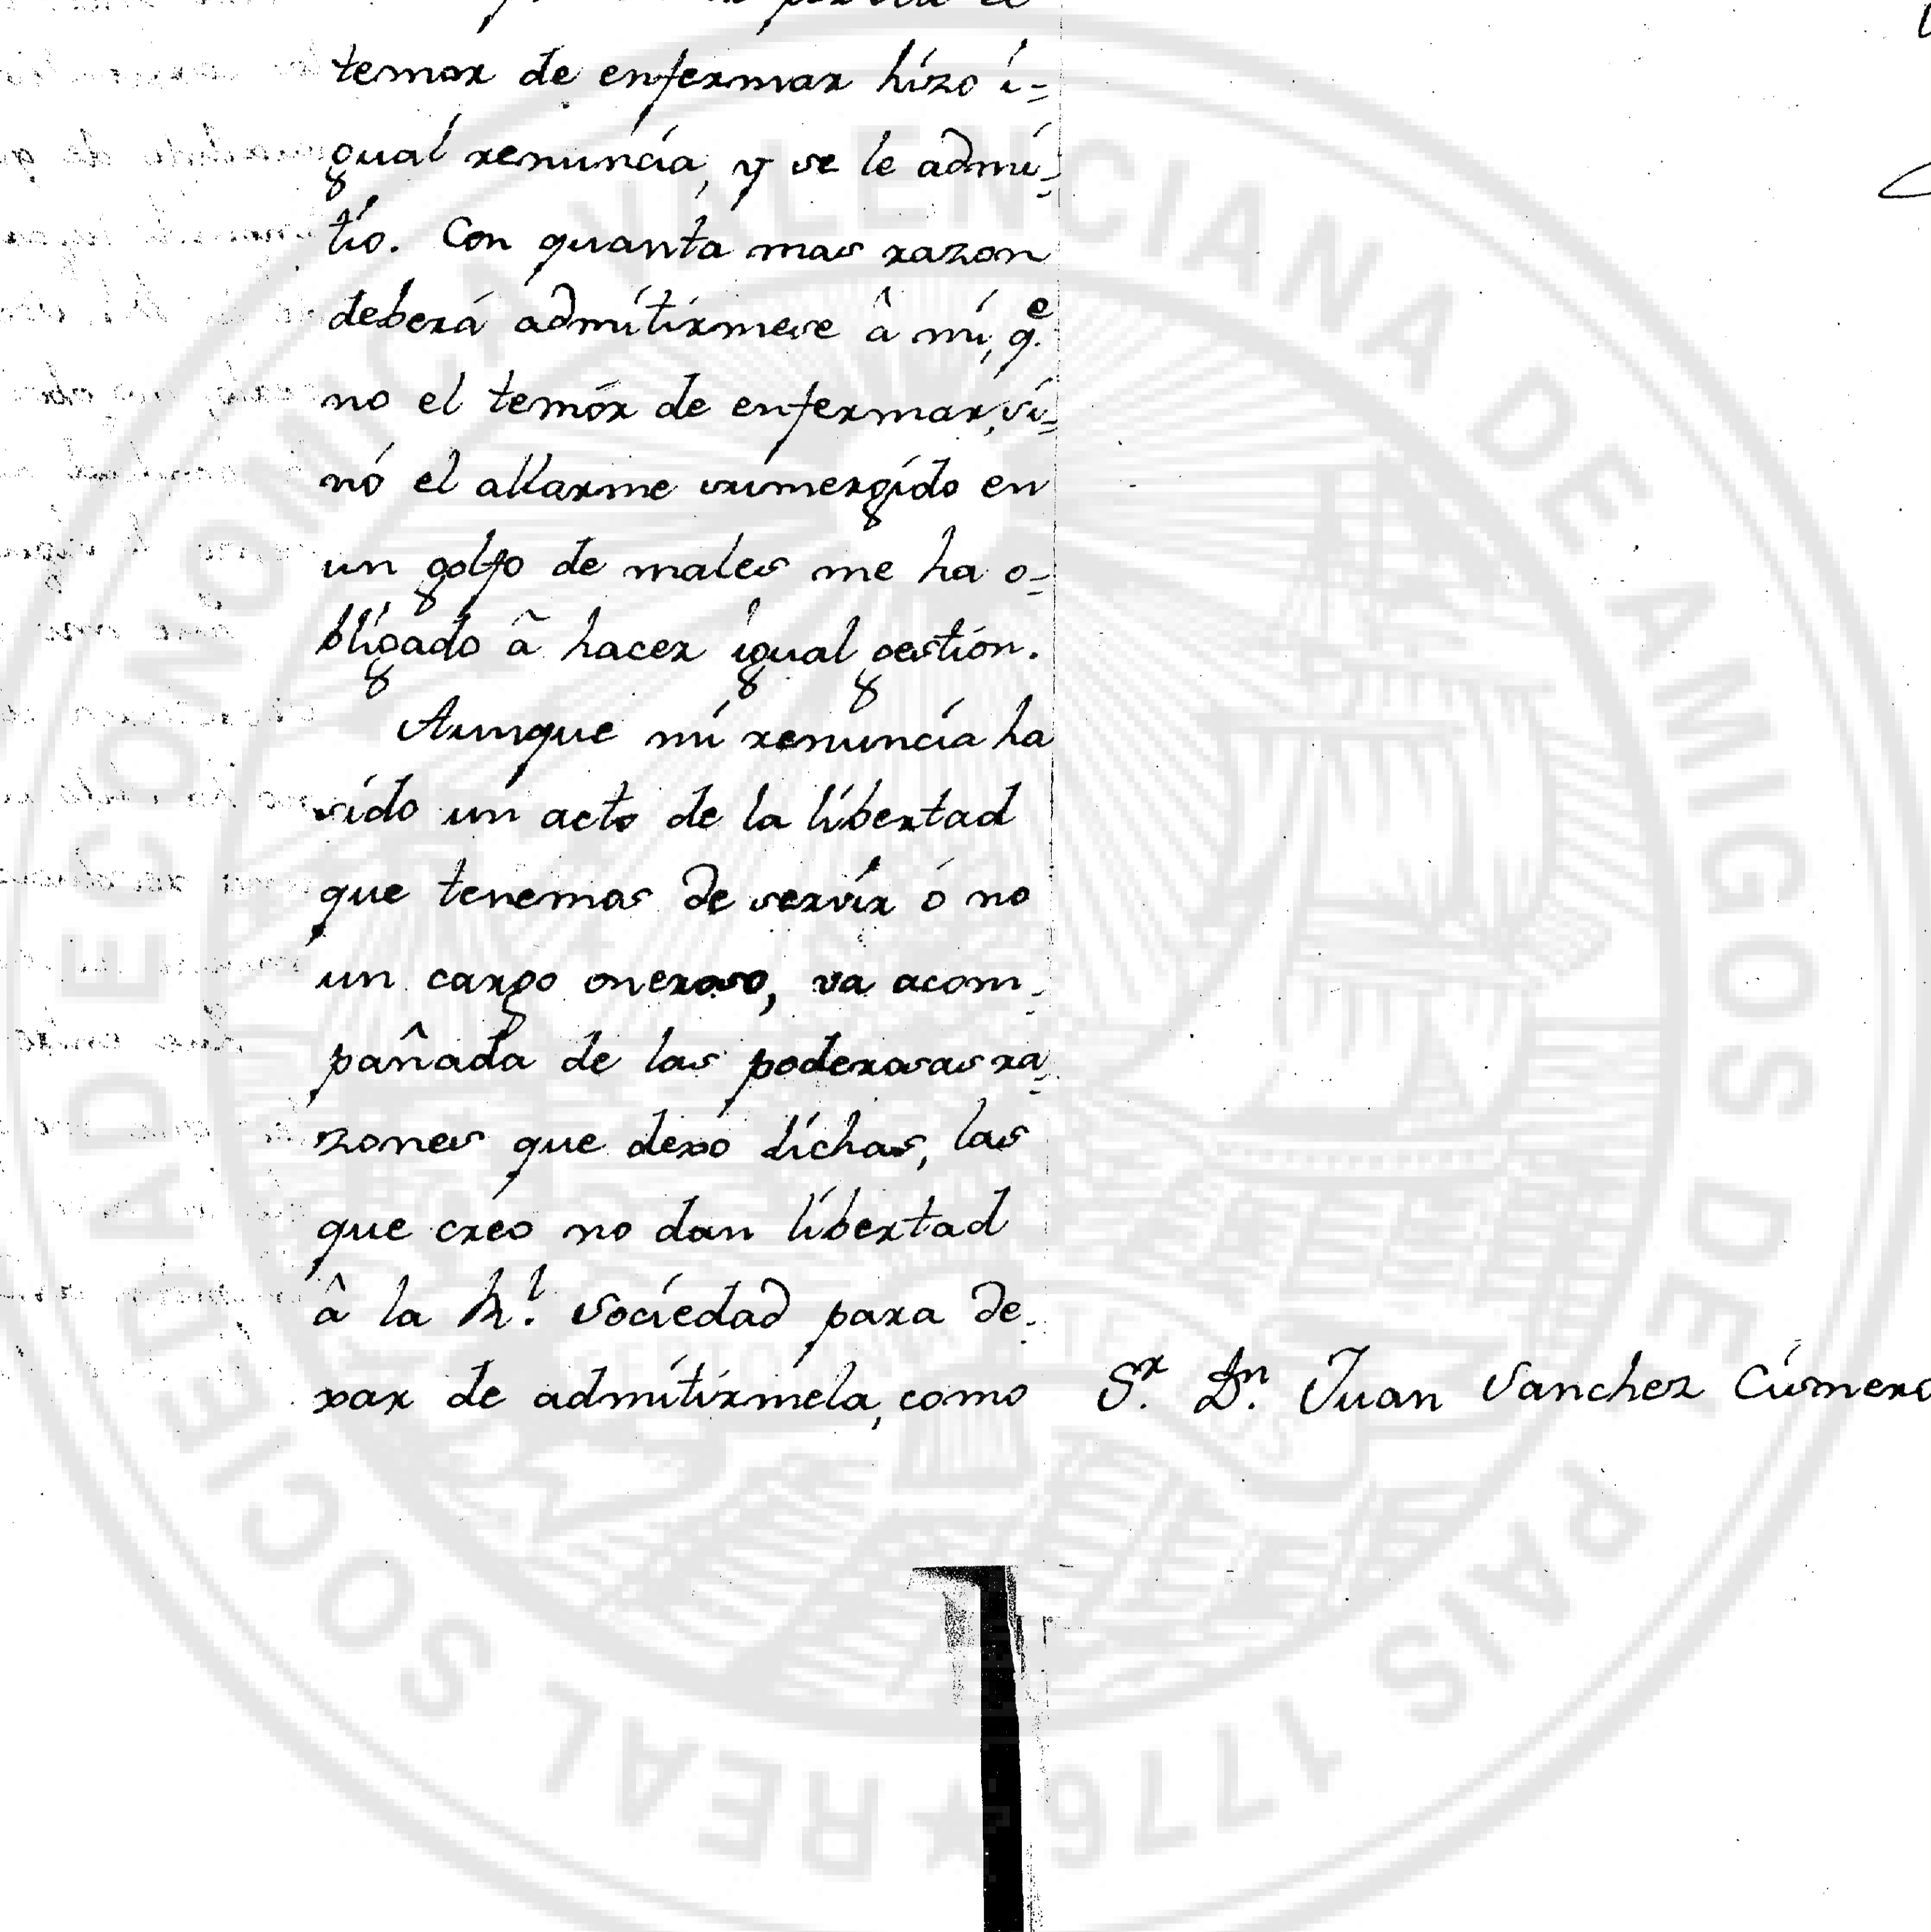 temor de enfermar hizo i=
gual renuncia, y se le admi=
tio. Con quanta mas razon
deberá admitirmese â mi, q.e
no el temór de enfermar, si=
nó el allarme sumergido en
un golfo de males me ha o=
bligado ã hacer igual gestion.
Aunque mi renuncia ha
sido un acto de la libertad
que tenemos de servir ó no
un cargo oneroso, va acom=
pañada de las poderosas ra=
zones que dexo dichas, las
que creo no dan libertad
â la R.l Sociedad para de=
xar de admitirmela, como
S.r D.n Juan Sanchez Cisnero
REAL SOCIEDAD ECONOMICA VALENCIANA DE AMIGOS DEL PAIS 1776